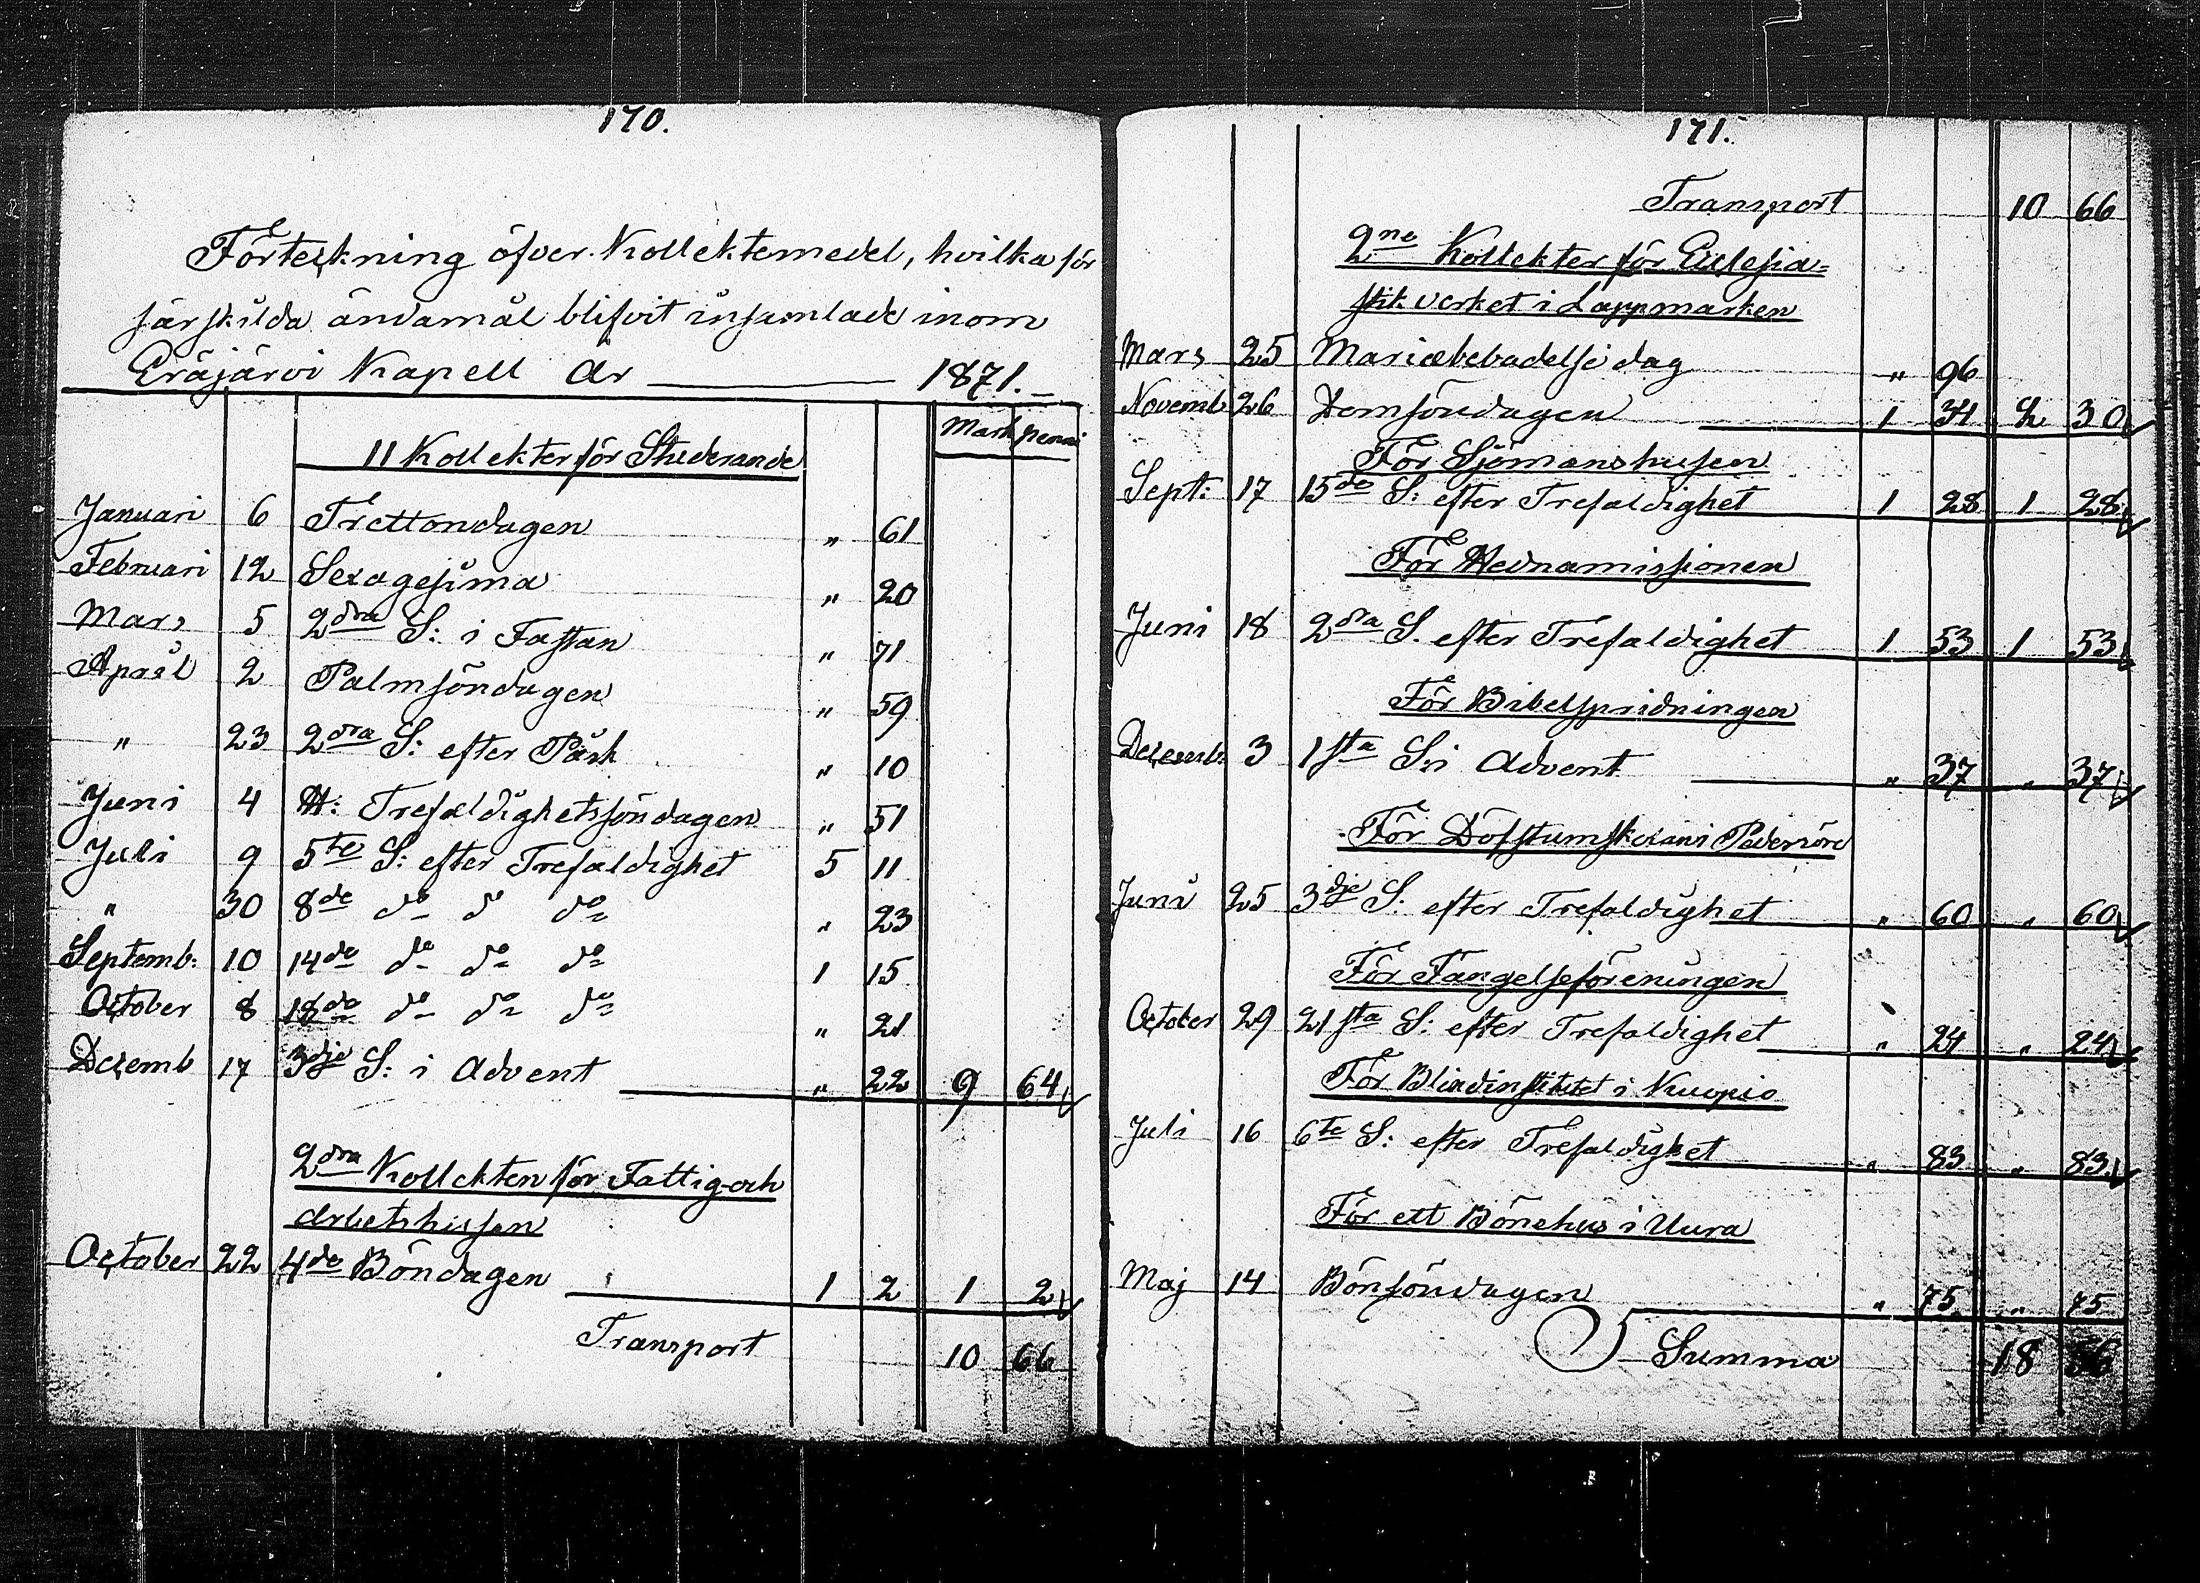 170.
Förteckning öfver Kollektemedel, hvilka för
särskilda ändamål blifvit insamlade inom
Eräjärvi Kapell år 1871.
Mark penni
11 Kollekter för Studerande
Januari 6 Trettondagen " 61
Februari 12 Sexagesima " 20
Mars 5 2dra S: i Fastan " 71
April 2 Palmsöndagen " 59
" 23 2dra S: efter Påsk " 10
Juni 4 H: Trefaldighetssöndagen " 51
Juli 9 5te S: efter Trefaldighet 5 11
" 30 8de do do do " 23
Septemb: 10 14de do do do 1 15
October 8 18de do do do " 21
Decemb 17 3dje S: i Advent " 22 9 64
2dra Kollekten för Fattig- och
Arbetshusen
October 22 4de Böndagen 1 2 1 2
Transport 10 66
171.
Transport 10 66
2ne Kollekter för Ecclesia-
stik verket i Lappmarken
Mars 25 Mariæbebådelse dag " 96
Novemb 26 Domsöndagen 1 34 2 30
För Sjömanshusen
Sept: 17 15de S: efter Trefaldighet 1 28 1 28
För Hednamissionen
Juni 18 2dra S. efter Trefaldighet 1 53 1 53
För Bibelspridningen
Decemb: 3 1sta S: i Advent " 37 " 37
För Döfstumskolan i Pedersöre
Juni 25 3dje S: efter Trefaldighet " 60 " 60
För Fängelseföreningen
October 29 21sta S: efter Trefaldighet " 24 " 24
För Blindinstitutet i Kuopio
Juli 16 6te S: efter Trefaldighet " 83 " 83
För ett Bönehus i Uura
Maj 14 Bönsöndagen " 75 " 75
Summa 18 56